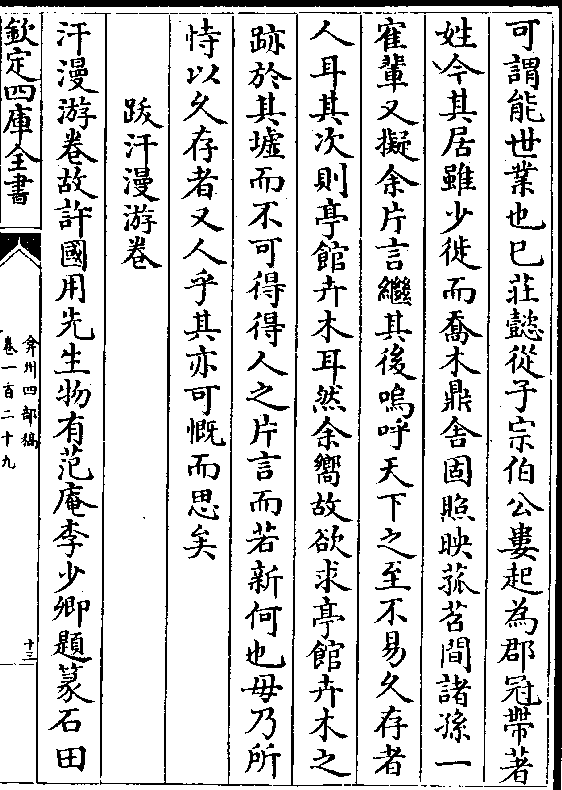 可謂能世業也已莊懿從子宗伯公婁起為郡冠帶著
姓今其居雖少徙而喬木鼎舍固照映菰苕間諸孫一
寉輩又擬余片言繼其後嗚呼天下之至不易久存者
人耳其次則亭館卉木耳然余嚮故欲求亭館卉木之
跡於其墟而不可得得人之片言而若新何也毋乃所
恃以久存者又人乎其亦可慨而思矣
跋汗漫游卷
汗漫游卷故許國用先生物有范庵李少卿題篆石田
欽定四庫全書
弇州四部稿
卷一百二十九
十三